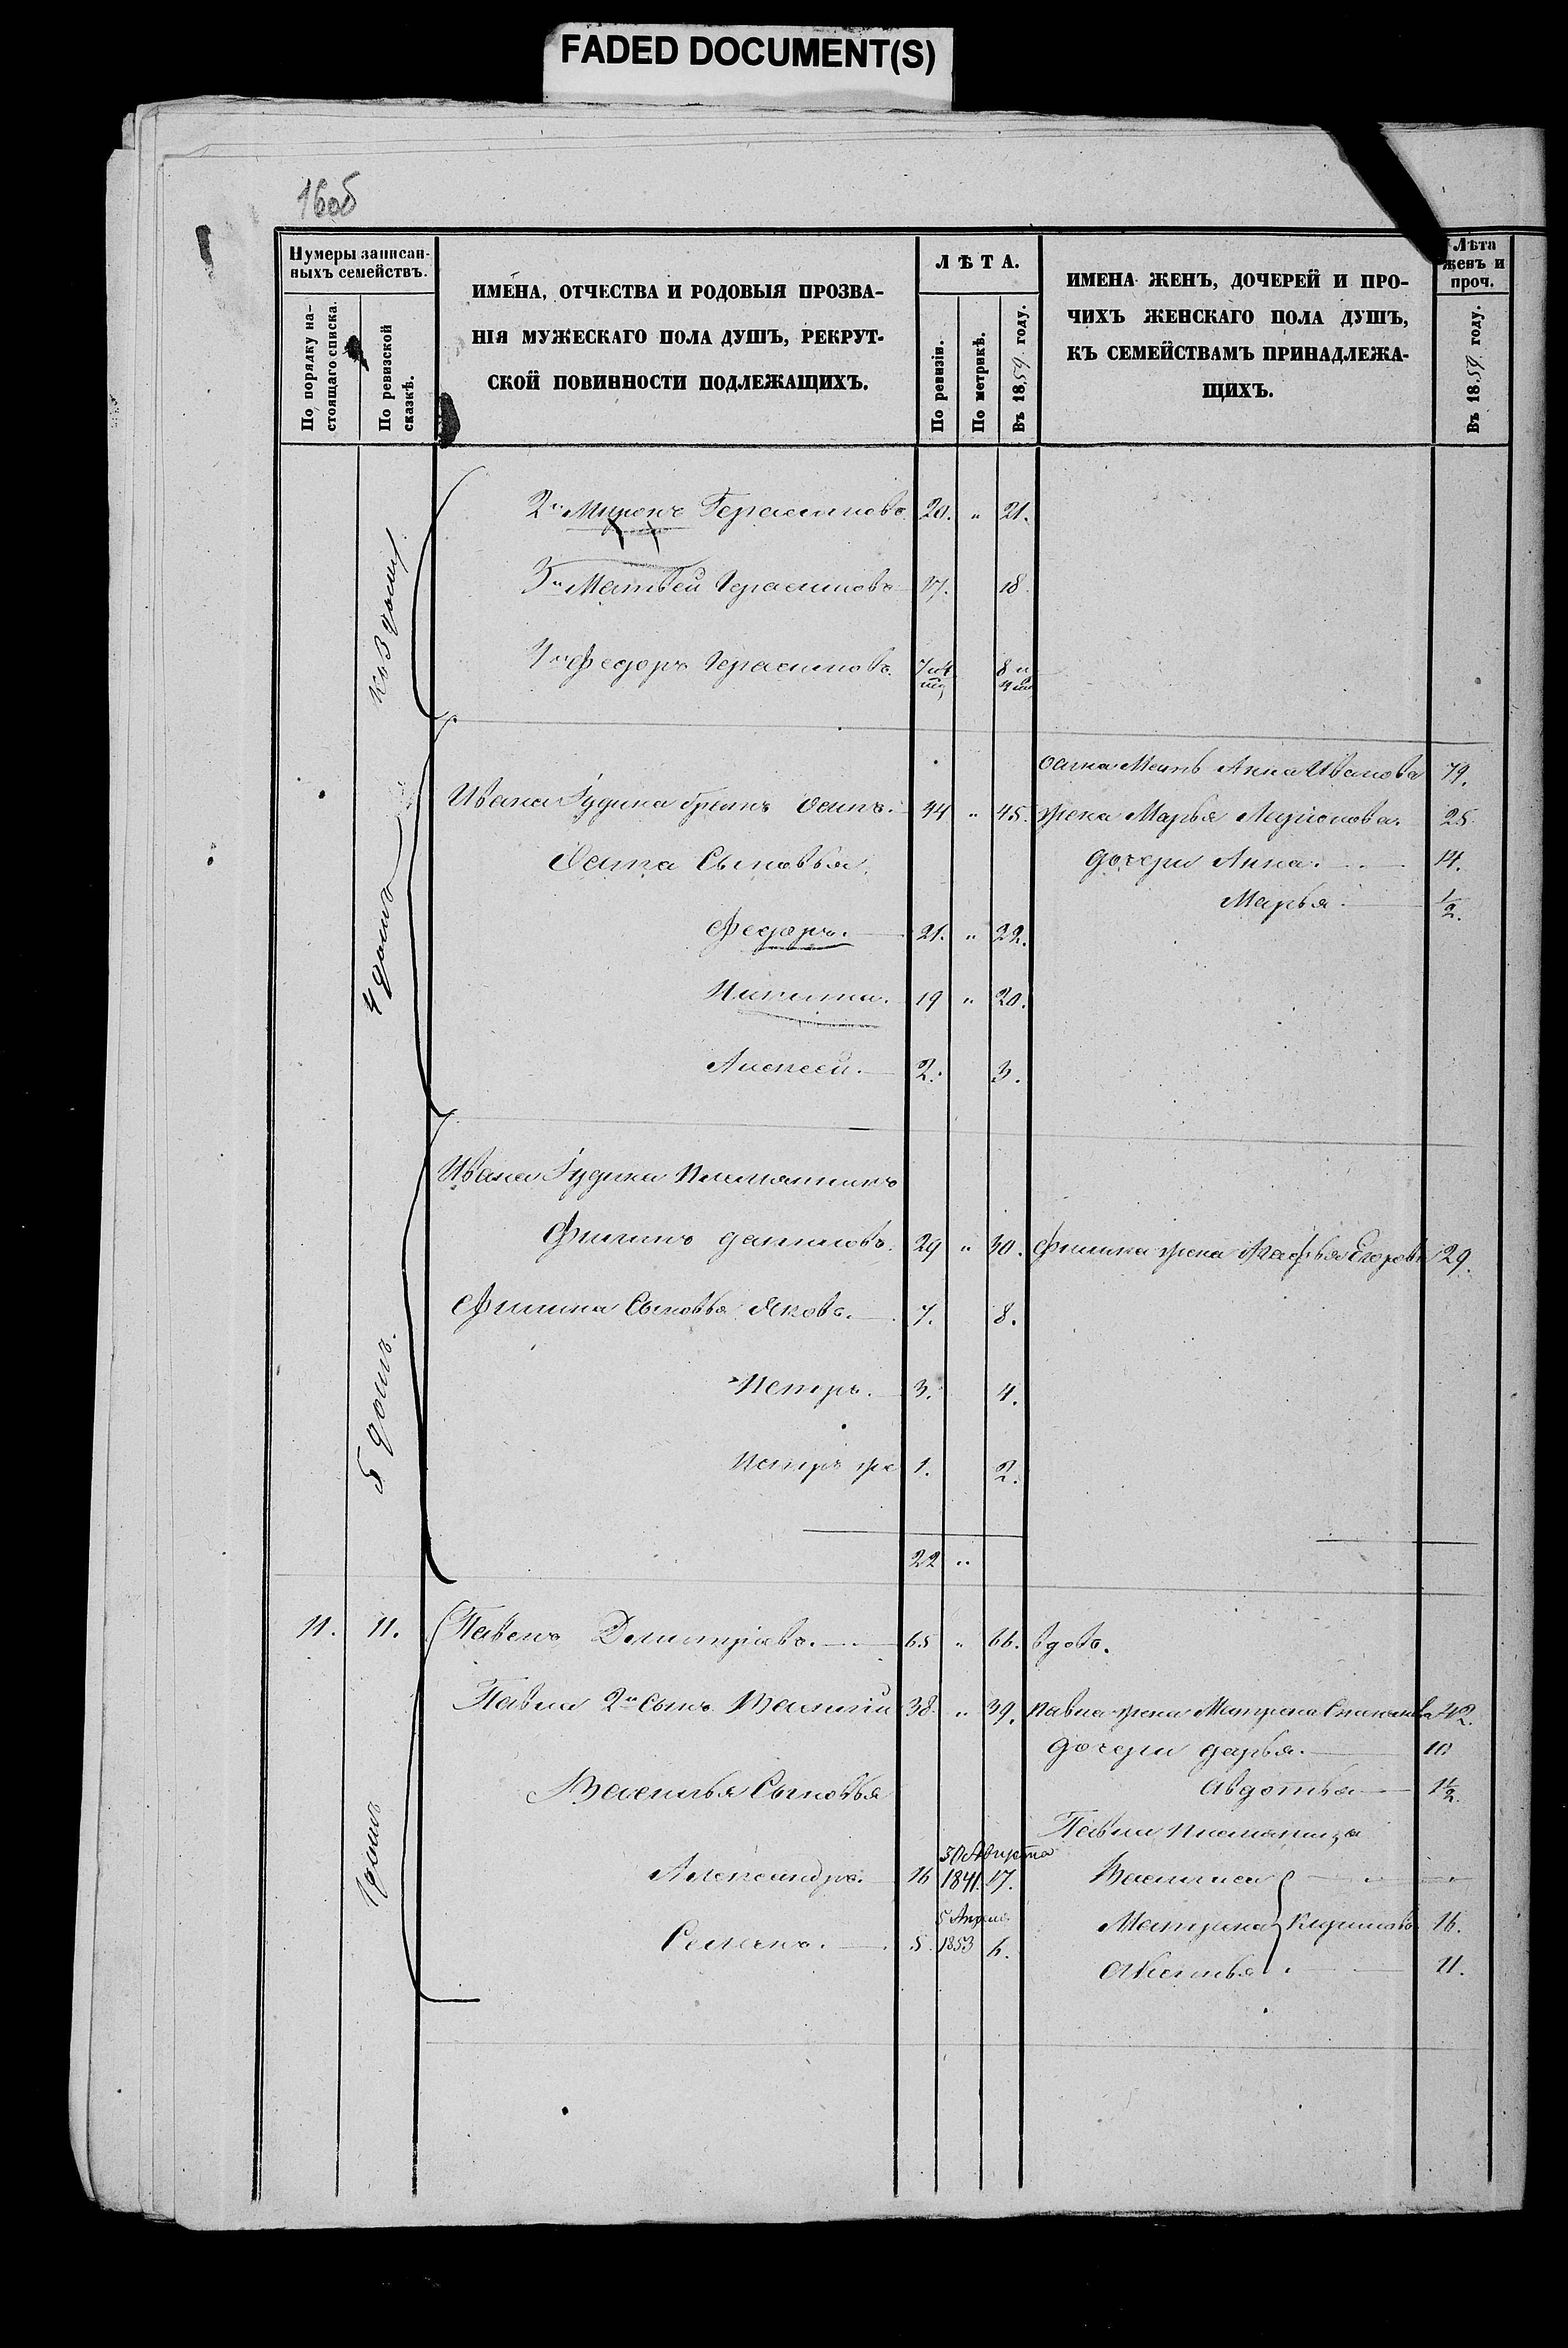 FADED DOCUMENT(S)
16об
Нумеры записан-
ныхъ семействъ.
По порядку на-
стоящаго списка.
По ревизской
сказкѣ.
ИМЕНА, ОТЧЕСТВА И РОДОВЫЯ ПРОЗВА-
НІЯ МУЖЕСКАГО ПОЛА ДУШЪ, РЕКРУТ-
СКОЙ ПОВИННОСТИ ПОДЛЕЖАЩИХЪ.
ЛѢТА.
По ревизіи.
По метрикѣ.
Въ 1859 году.
ИМЕНА ЖЕНЪ, ДОЧЕРЕЙ И ПРО-
ЧИХЪ ЖЕНСКАГО ПОЛА ДУШЪ,
КЪ СЕМЕЙСТВАМЪ ПРИНАДЛЕЖА-
ЩИХЪ.
Лѣта
женъ и
проч.
Въ 1859 году.
къ 3 дому
2й Миронъ Герасимовъ 20. " 21.
3й Матвей Герасимовъ 17. 18
4й Федоръ Герасимовъ. 7 8 и
4 домъ
Осипа Мать Анна Иванова 79.
Ивана Гудина братъ Осипъ. 44 " 45. жена Марья 25.
Осипа Сыновья дочери Анна. 14.
Марья 1/2.
Федоръ. 21. " 22.
Никита. 19 " 20.
Алексей. 2. 3.
5 домъ.
Ивана Гудина Племянникъ
Филипъ даниловъ. 29 " 30. Филипа жена Егорова 29.
Филипа Сыновья Яковъ. 7. 8.
Петръ. 3. 4.
Петръ же 1. 2.
22 "
11. 11. Павелъ Димитріевъ. 65 " 66. вдовъ.
1 домъ
Павла 2й Сынъ Василій 38. " 39. Павла жена Матрена 42.
дочери дарья. 10
Василья Сыновья Авдотья 1 1/2.
Павла племяница
30 Августа
Александръ. 16 1841. 17. Василиса "
5 Апреля
Матрена 16.
Семенъ. 5. 1853 6.
Аксинья. 11.